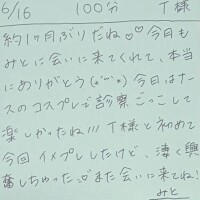 6/16 100分 T様
約1ヶ月ぶりだね♡♡今日も
みとに会いに来てくれて、本当
にありがとう(*´▽`*)今日はナー
スのコスプレで診察ごっこして
楽しかったね!!! T様と初めて
今回イメプレしたけど、凄く興
奮しちゃった♡また会いに来てね!
みと